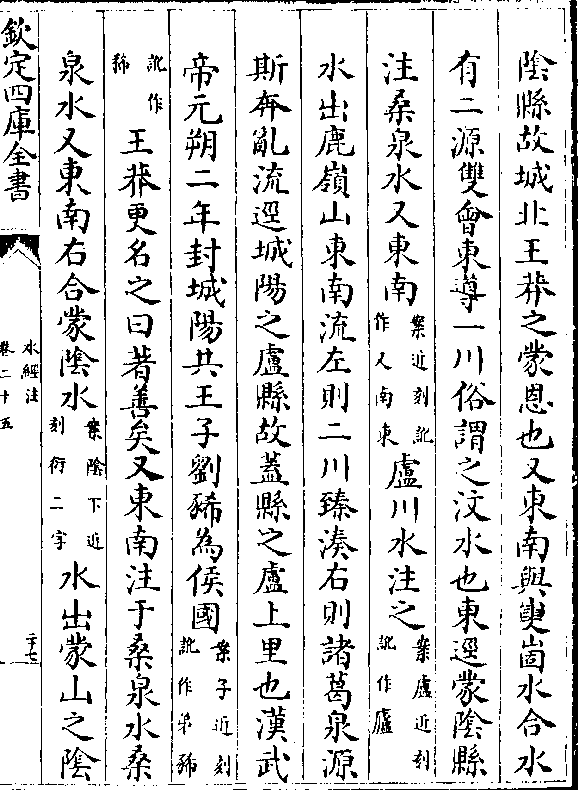 陰縣故城北王莽之蒙恩也又東南與㕙崮水合水
有二源雙會東導一川俗謂之汶水也東逕蒙陰縣
注桑泉水又東南案近刻訛作又南東盧川水注之案盧近刻訛作廬
水出鹿嶺山東南流左則二川臻湊右則諸葛泉源
斯奔亂流逕城陽之盧縣故蓋縣之盧上里也漢武
帝元朔二年封城陽共王子劉豨為侯國案子近刻訛作弟豨
訛作稀王莽更名之曰著善矣又東南注于桑泉水桑
泉水又東南右合蒙陰水案陰下近刻衍二字水出蒙山之陰
欽定四庫全書
水經注
卷二十五
二十七